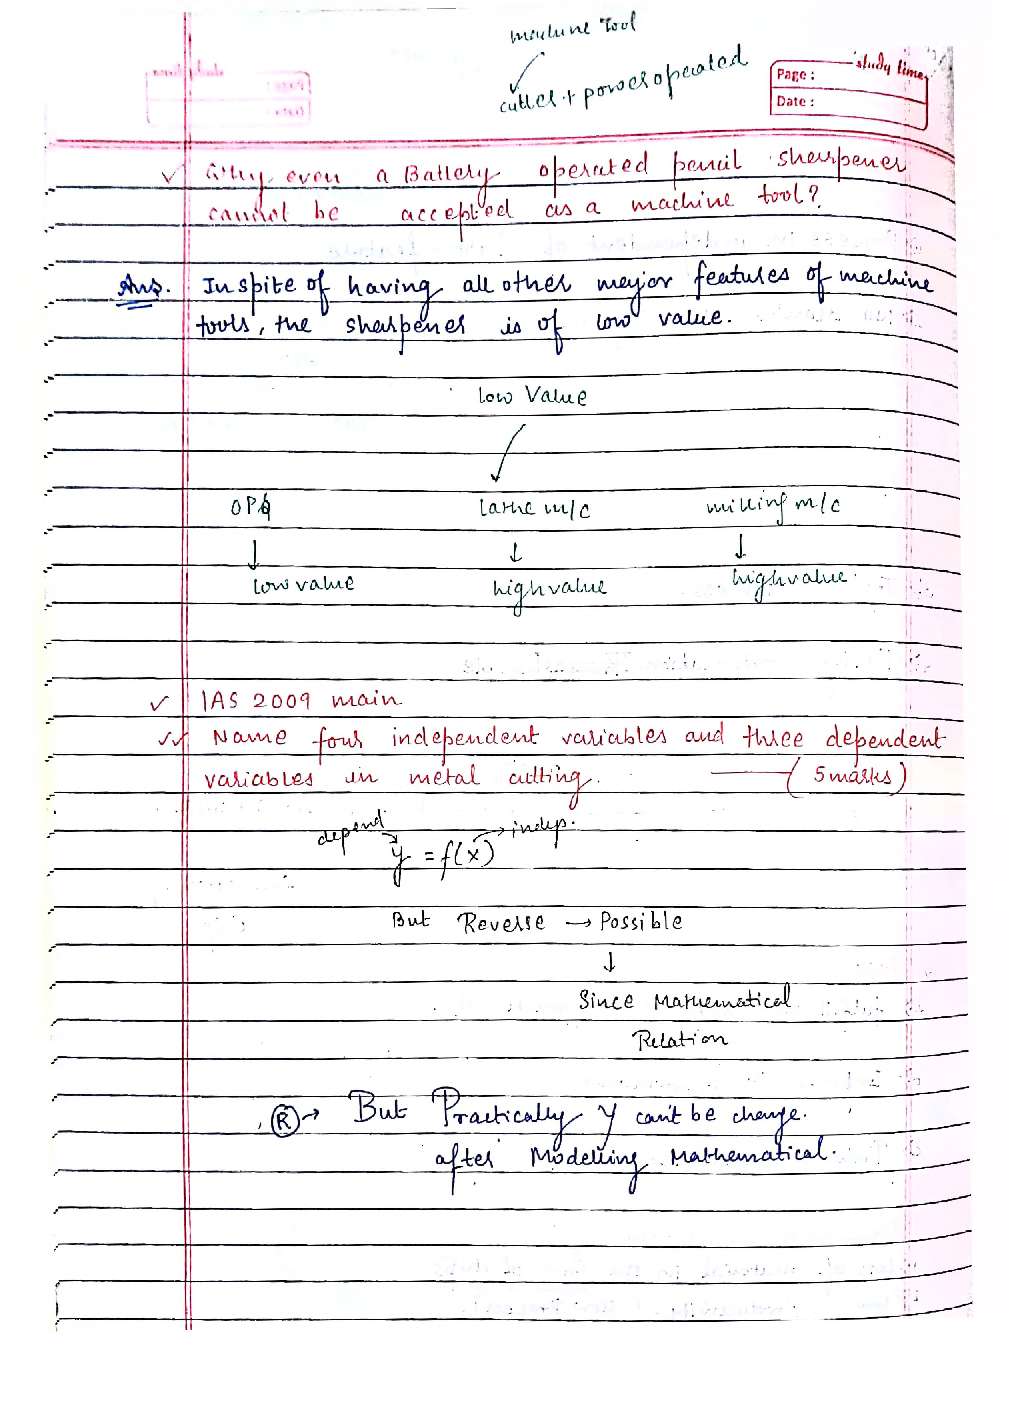 machine Tool
cutter + power operated
study time
Page :
Date :
Why even a Battery operated pencil sharpener
cannot be accepted as a machine tool?
Ans. Inspite of having all other major features of machine
tools, the sharpener is of low value.
Low Value
Lathe m/c milling m/c
low value high value high value.
IAS 2009 main
Name four independent variables and three dependent
variables in metal cutting. (5 marks)
depend indep.
y = f(x)
But Reverse → Possible
↓
Since Mathematical
Relation
Ⓡ→ But Practically y can't be change.
after Modelling Mathematical.